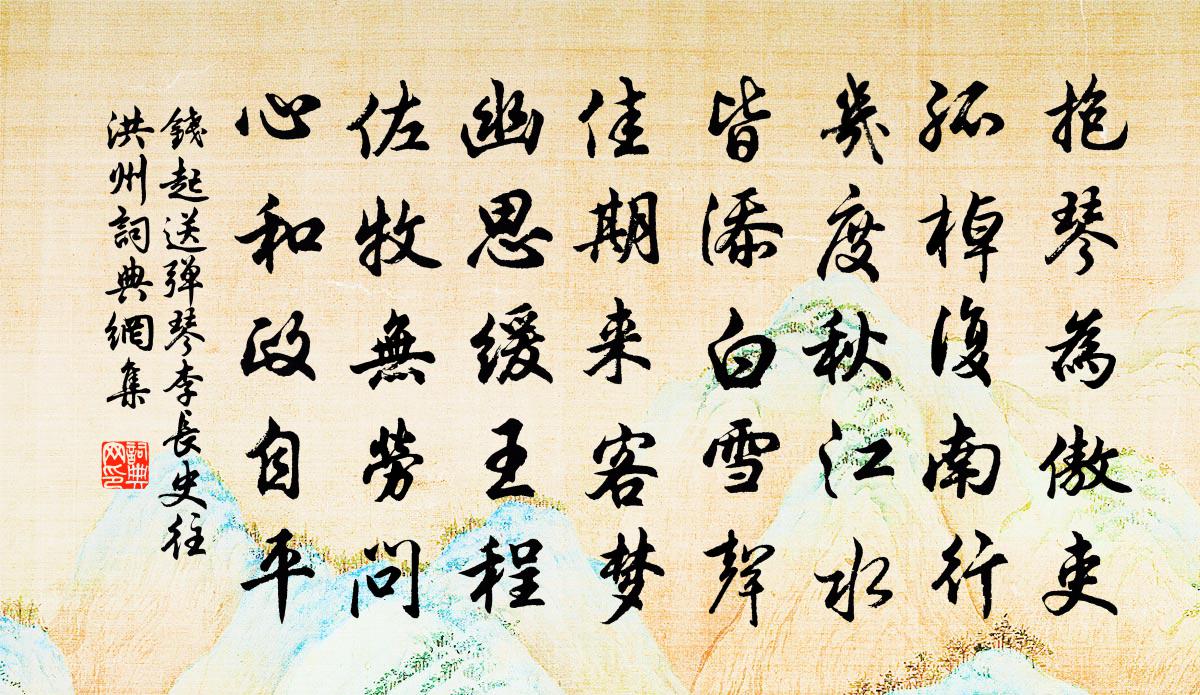 抱琴為傲吏
孤棹復南行
幾度秋江水
皆添白雪聲
佳期来客梦
幽思缓王程
佐牧無勞問
心和政自平
錢起送弹琴李長史往
洪州詞典網集
詞典
网印